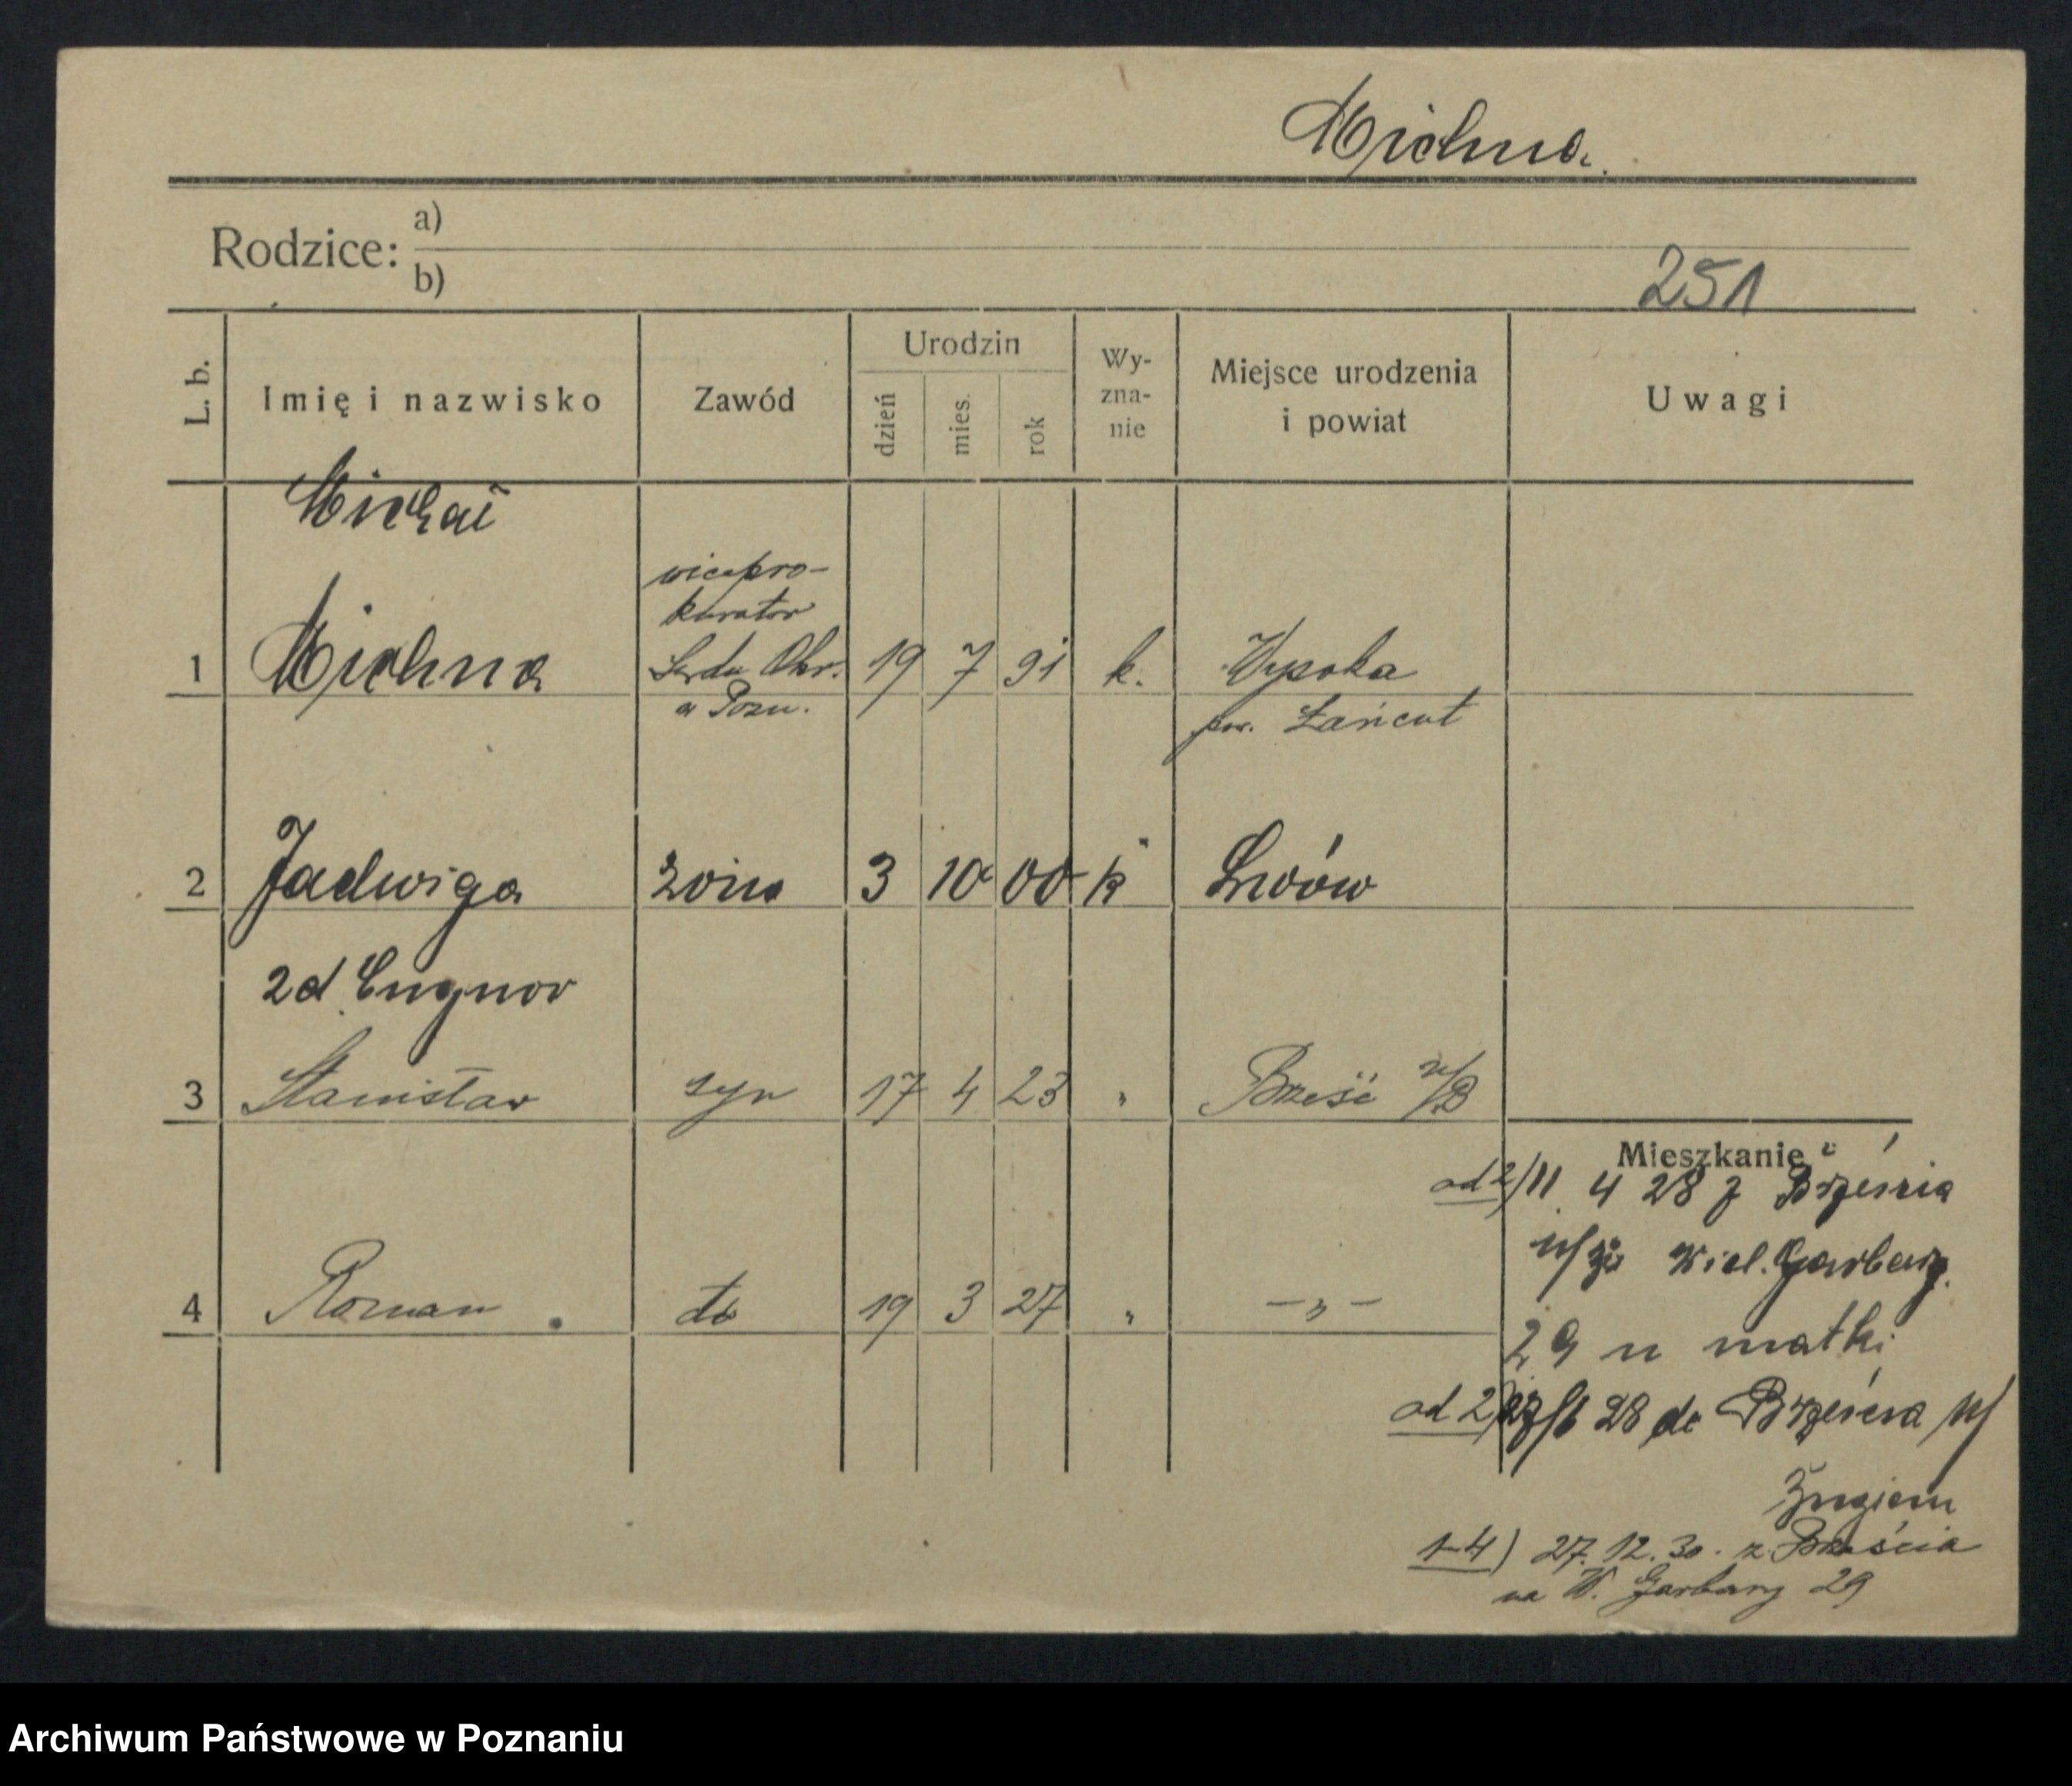 Michna.
Rodzice: a)
b)
251
L. b. Imię i nazwisko Zawód Urodzin dzień mies. rok Wy-zna-nie Miejsce urodzenia i powiat Uwagi
Michał
wicepro-
kurator
1 Michna Sądu Okr. 19 7 91 k. Wysoka
w Pozn. pow. Łańcut
2 Jadwiga żona 3 10 00 k Lwów
zd
3 Stanisław syn 17 4 23 " Brześć n/B
Mieszkanie
od 2/11 4 28 z Brześcia
n/B Wiel. Garbary
4 Roman dto 19 3 27 " -"-
29 u matki
od 2 28 do Brześcia n/
Bugiem
1-4) 27. 12. 30. z Brześcia
na W. Garbary 29
Archiwum Państwowe w Poznaniu